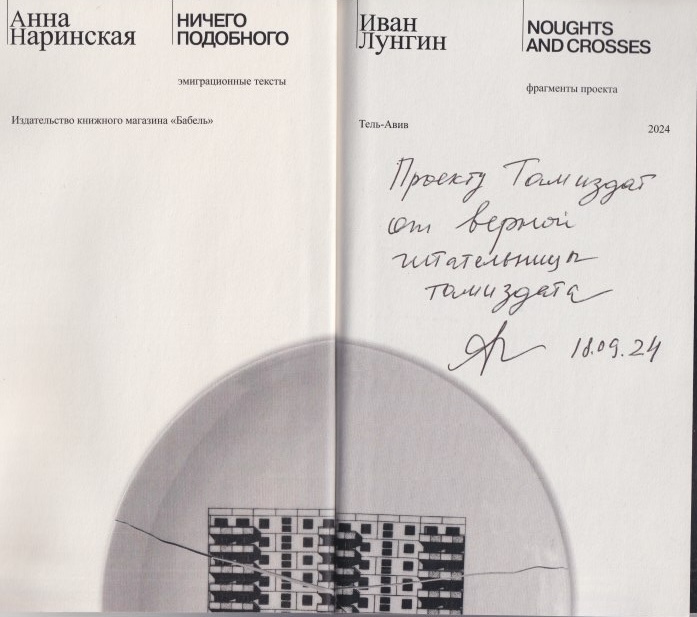 Анна
Наринская
НИЧЕГО
ПОДОБНОГО
эмиграционные тексты
Издательство книжного магазина «Бабель»
Иван
Лунгин
NOUGHTS
AND CROSSES
фрагменты проекта
Тель-Авив
2024
Проекту Тамиздат
от верной
читательницы
тамиздата
18.09.24